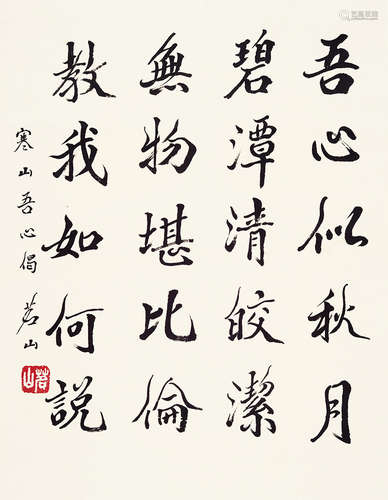 吾心似秋月
碧潭清皎潔
無物堪比倫
教我如何說
寒山吾心偈
茗山
茗山